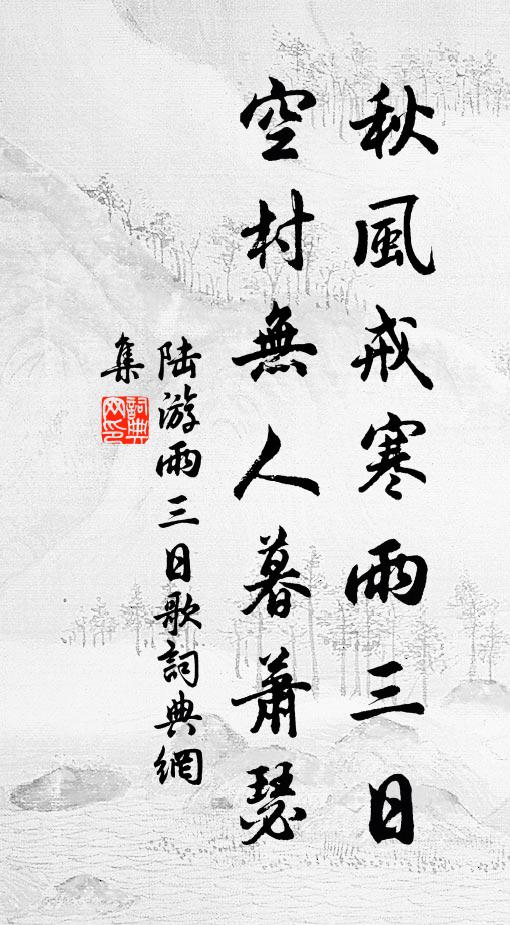 秋風戒寒雨三日
空村無人暮蕭瑟
陸游雨三日歌詞典網
集
詞典網印